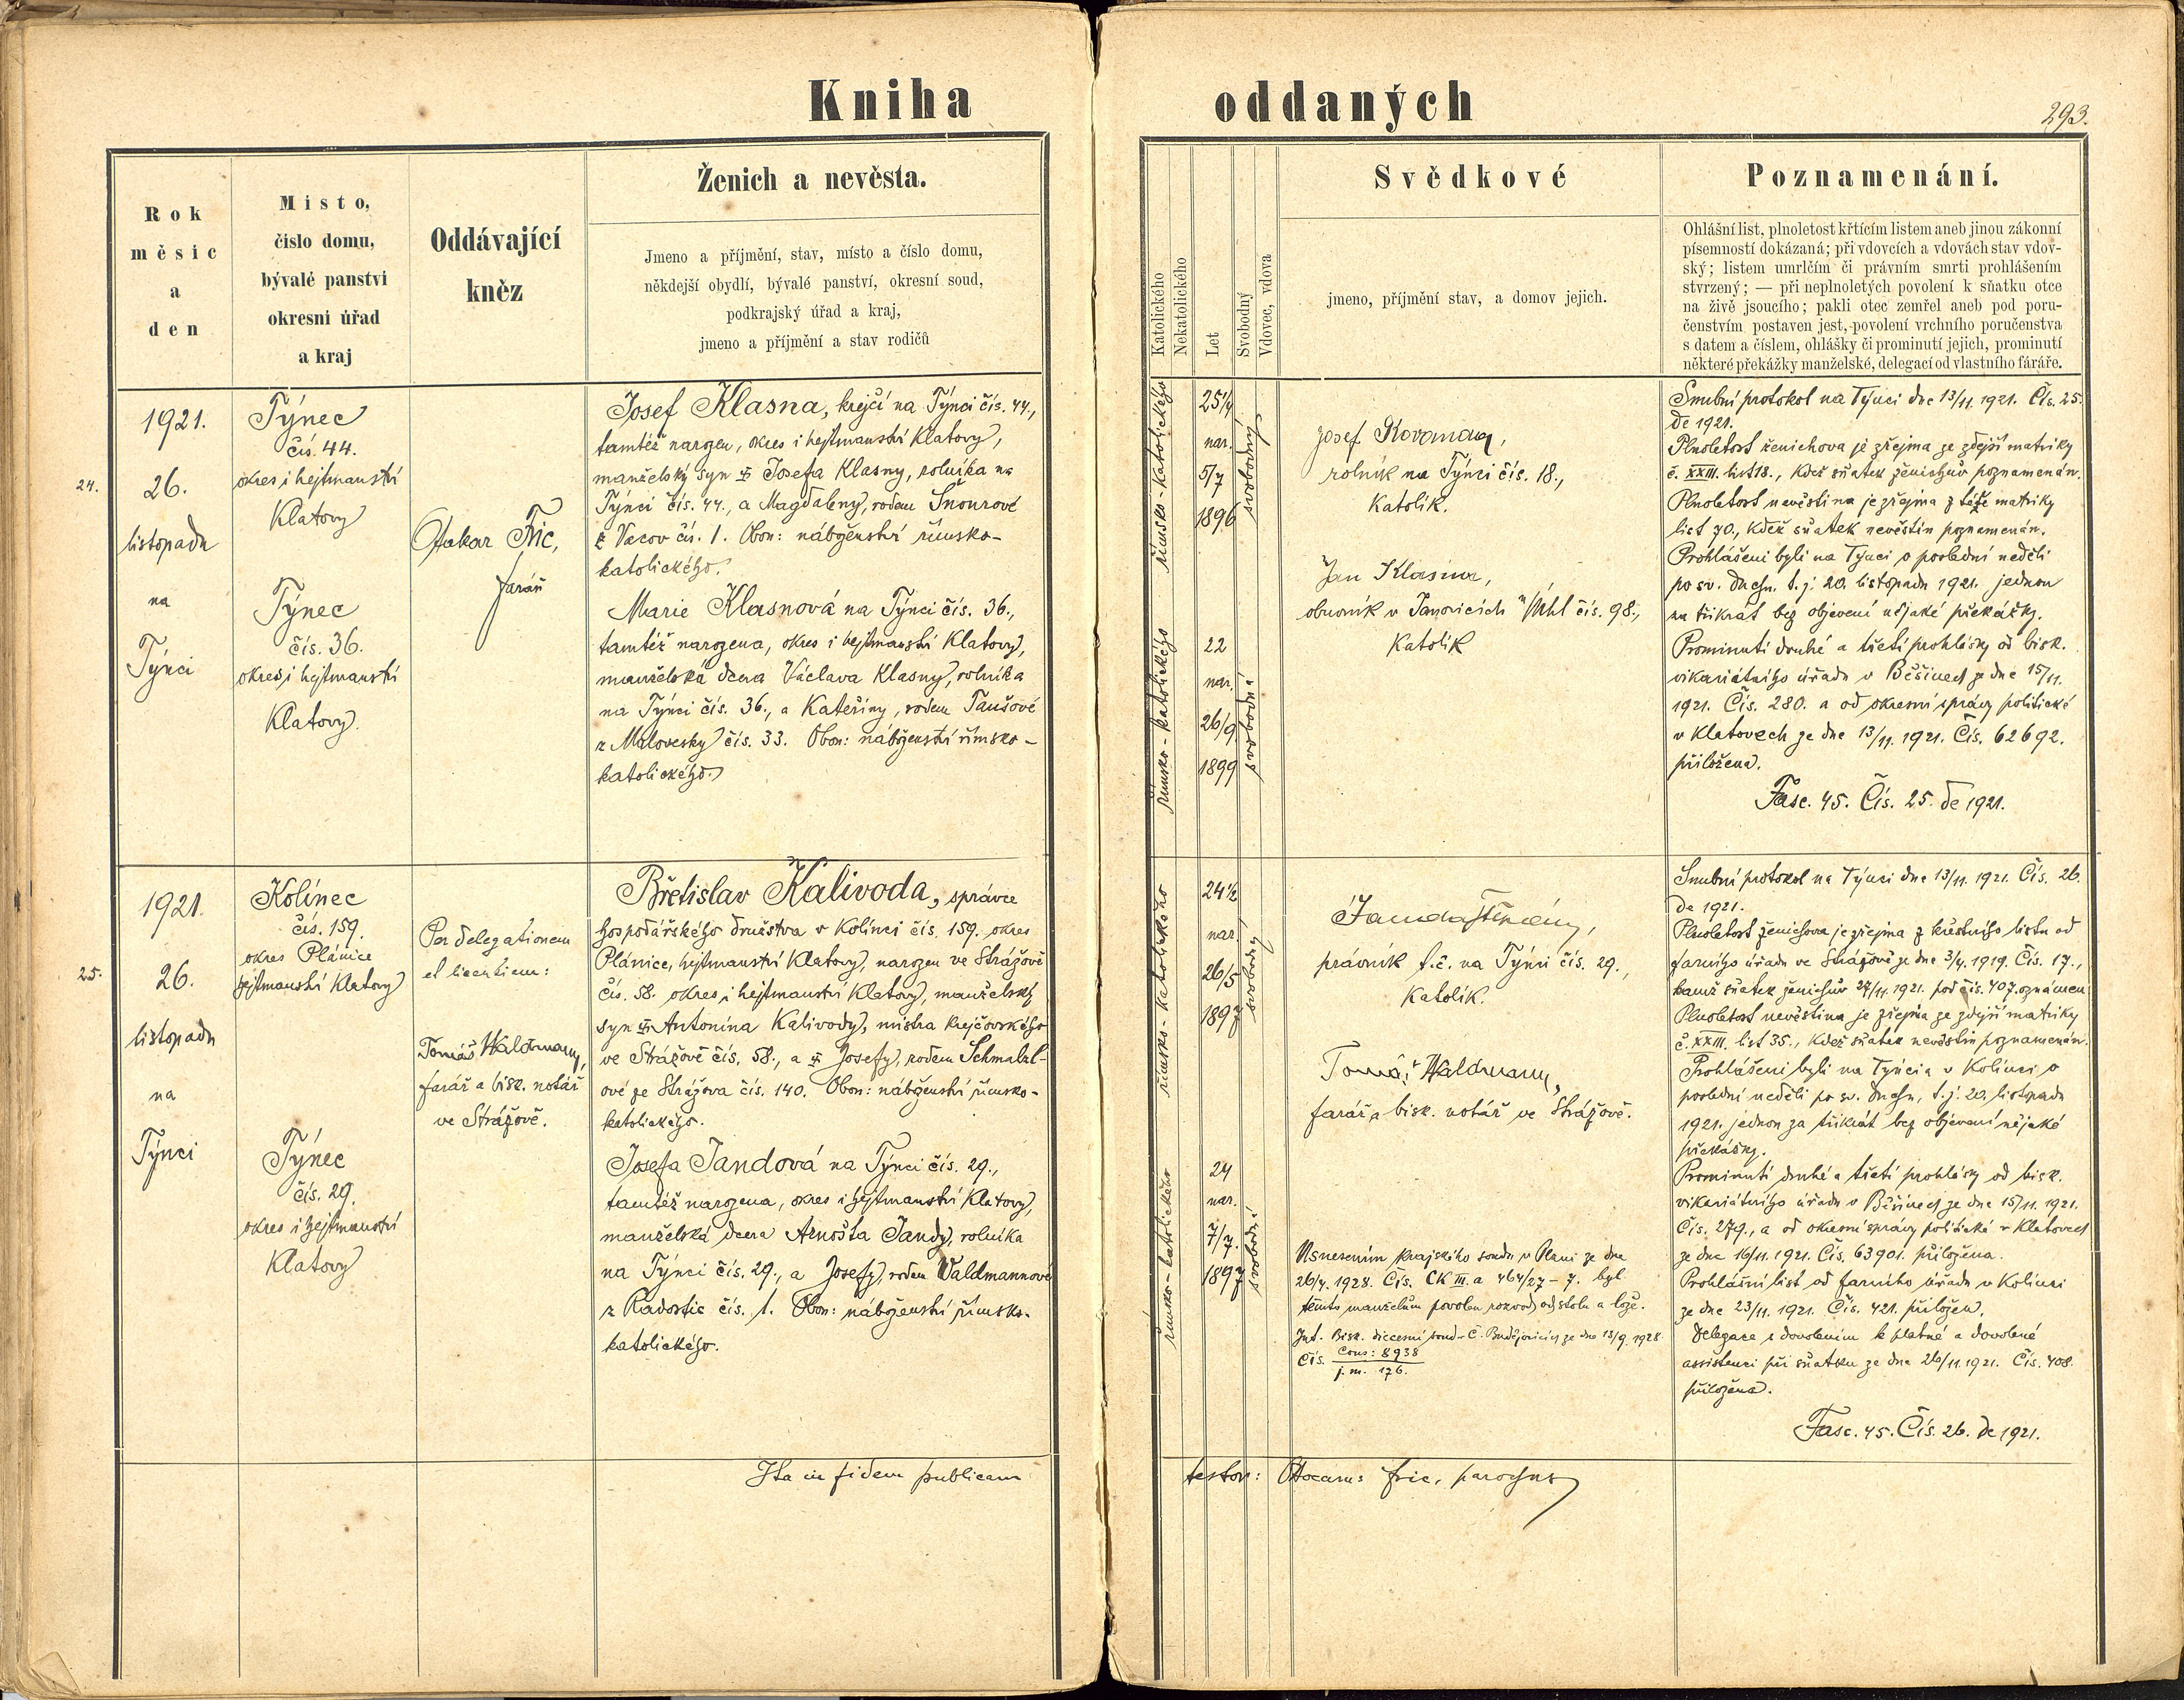 Kniha oddaných
293.
Rok
měsic
a
den
Misto,
čislo domu,
bývalé panstvi
okresni úřad
a kraj
Oddávající
kněz
Ženich a nevěsta.
Jmeno a příjmění, stav, místo a číslo domu,
někdejší obydlí, bývalé panství, okresní soud,
podkrajský úřad a kraj,
jmeno a příjmění a stav rodičů
Katolického
Nekatolického
Let
Svobodný
Vdovec, vdova
Svědkové
jmeno, příjmění stav, a domov jejich.
Poznamenání.
Ohlášní list, plnoletost křtícím listem aneb jinou zákonní
písemností dokázaná; při vdovcích a vdovách stav vdov-
ský; listem umrlčím či právním smrti prohlášením
stvrzený; — při neplnoletých povolení k sňatku otce
na živě jsoucího; pakli otec zemřel aneb pod poru-
čenstvím postaven jest, povolení vrchního poručenstva
s datem a číslem, ohlášky či prominutí jejich, prominutí
některé překážky manželské, delegací od vlastního fáráře.
24.
1921.
26.
listopadu
na
Týnci
Týnec
čís. 44.
okres i hejtmanství
Klatovy
Týnec
čís. 36.
okres i hejtmanství
Klatovy.
Otakar Fric,
farář
Josef Klasna, krejčí na Týnci čís. 44.,
tamtéž narozen, okres i hejtmanství Klatovy,
manželský syn Josefa Klasny, rolníka na
Týnci čís. 44., a Magdaleny, rodem Šnourové
z Vacov čís. 1. Obou: náboženství římsko-
katolického.
Marie Klasnová na Týnci čís. 36.,
tamtéž narozena, okres i hejtmanství Klatovy,
manželská dcera Václava Klasny, rolníka
na Týnci čís. 36., a Kateřiny, rodem Taušové
z Malovesky čís. 33. Obou: náboženství římsko-
katolického.
římsko-katolického
25¼
nar.
5/7
1896
svobodný
římsko-katolického
22
nar.
26/9
1899
svobodná
Josef
rolník na Týnci čís. 18.,
Katolík.
Jan Klasna,
obuvník v Janovicích n/Úhl čís. 98.,
Katolík
Snubní protokol na Týnci dne 13/11. 1921. Čís. 25.
de 1921.
Plnoletost ženichova je zřejma ze zdejší matriky
č. XXIII. list 18., kdež sňatek ženichův poznamenán.
Plnoletost nevěstina je zřejma z téže matriky
list 70., kdež sňatek nevěstin poznamenán.
Prohlášeni byli na Týnci o poslední neděli
po sv. Duchu. t. j. 20. listopadu 1921. jednou
za třikrát bez objevení nějaké překážky.
Prominutí druhé a třetí prohlášky od bisk.
vikariátního úřadu v Běšinech ze dne 15/11.
1921. Čís. 280. a od okresní správy politické
v Klatovech ze dne 13/11. 1921. Čís. 62692.
přiložena.
Fasc. 45. Čís. 25. de 1921.
25.
1921.
26.
listopadu
na
Týnci
Kolínec
čís. 159.
okres Plánice
hejtmanství Klatovy
Týnec
čís. 29.
okres i hejtmanství
Klatovy
Per delegationem
et licentiam:
Tomáš Waldmann,
farář a bisk. notář
ve Strážově.
Břetislav Kalivoda, správce
hospodářského družstva v Kolínci čís. 159. okres
Plánice, hejtmanství Klatovy, narozen ve Strážově
čís. 58. okres i hejtmanství Klatovy, manželský
syn Antonína Kalivody, mistra krejčovského
ve Strážově čís. 58., a Josefy, rodem Schmalzl-
ové ze Strážova čís. 140. Obou: náboženství římsko-
katolického.
Josefa Jandová na Týnci čís. 29.,
tamtéž narozena, okres i hejtmanství Klatovy,
manželská dcera Arnošta Jandy, rolníka
na Týnci čís. 29., a Josefy, rodem Waldmannové
z Radostic čís. 1. Obou: náboženství římsko-
katolického.
římsko-katolického
24½
nar.
26/5
1897
svobodný
římsko-katolického
24
nar.
7/7.
1897
svobodná
Janda
právník t. č. na Týnci čís. 29.,
Katolík.
Tomáš Waldmann,
farář a bisk. notář ve Strážově.
Usnesením krajského soudu v Plzni ze dne
26/4. 1928. Čís. CK III. a 464/27-7. byl
těmto manželům povolen rozvod od stolu a lože.
Int. Bisk. diecesní soud Č. Budějovicích ze dne 13/9. 1928.
Čís. Cons: 8938
j. m. 176.
Snubní protokol na Týnci dne 13/11. 1921. Čís. 26.
de 1921.
Plnoletost ženichova je zřejma z křestního listu od
farního úřadu ve Strážově ze dne 3/4. 1919. Čís. 17.,
kamž sňatek ženichův 27/11. 1921. pod čís. 407. oznámen
Plnoletost nevěstina je zřejma ze zdejší matriky
č. XXIII. list 35., kdež sňatek nevěstin poznamenán.
Prohlášeni byli na Týnci a v Kolínci o
poslední neděli po sv. Duchu, t. j. 20. listopadu
1921. jednou za třikrát bez objevení nějaké
překážky.
Prominutí druhé a třetí prohlášky od bisk.
vikariátního úřadu v Běšinech ze dne 15/11. 1921.
Čís. 279., a od okresní správy politické v Klatovech
ze dne 16/11. 1921. Čís. 63901. přiložena.
Prohlášní list od farního úřadu v Kolínci
ze dne 23/11. 1921. Čís. 421. přiložen.
Delegace s dovolením k platné a dovolené
assistenci při sňatku ze dne 26/11. 1921. Čís. 408.
přiložena.
Fasc. 45. Čís. 26. de 1921.
Ita in fidem publicam testor: Otocarus Fric, parochus